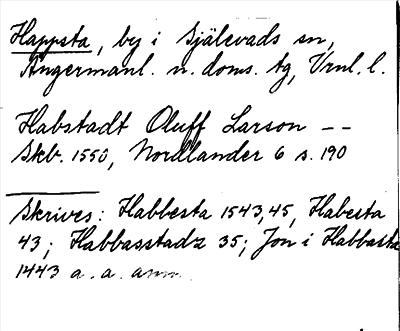 Happsta, by i Själevads sn,
Ångermanl. n. doms. tg, Vrnl. l.
Habstadt Oluff Larson --
Skb. 1550, Nordlander 6 s. 190
Skrives: Habbesta 1543,45, Habesta
43; Habbasstadz 35; Jon i Habbasta
1443 a. a. anm.